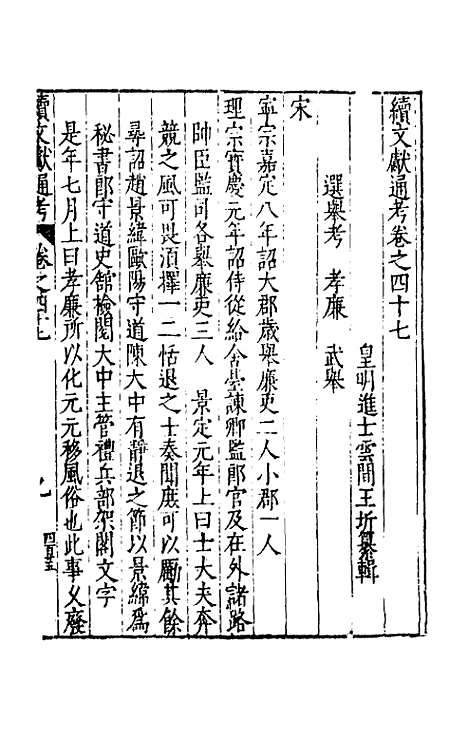 續文獻通考卷之四十七
皇明進士雲間王圻纂輯
選舉考 孝廉 武舉
宋
寧宗嘉定八年詔大郡歲舉廉吏二人小郡一人
理宗寶慶元年詔侍從給舍臺諫卿監郎官及在外諸路
帥臣監司各舉廉吏三人 景定元年上曰士大夫奔
競之風可畏須擇一二恬退之士奏聞庶可以勵其餘
尋詔趙景緯歐陽守道陳大中有靜退之節以景緯為
秘書郎守道史舘檢閱大中主管禮兵部架閣文字
是年七月上曰孝廉所以化元元移風俗也此事乆廢
續文獻通考 卷之四十七